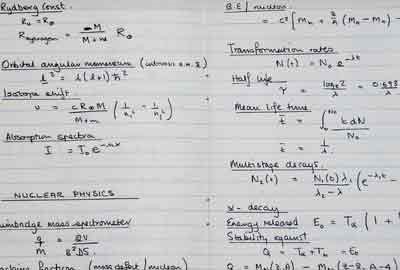 Rydberg Const.
R₀ = R∞
R hydrogen = M / M+m R∞
Orbital angular momentum (intrinsic a.m. S)
l² = l(l+1)ħ²
Isotope shift.
υ = cR∞M / M+m (1/n₁² - 1/n₂²)
Absorption spectra
I = I₀e
NUCLEAR PHYSICS
Bainbridge mass spectrometer
q/M = 2V / B²DS
fraction (mass defect / nucleon)
B.E / nucleon
= c² [Mn + Z/A (MH - Mn) -
Transformation rates
N(t) = N₀ e^-λt
Half life
τ = loge2 / λ = 0.693 / λ
Mean life time
t̄ = ∫₀^N₀ t dN / N₀
t̄ = 1/λ
Multistage decays.
N₂(t) = N₁(0)λ₁ / λ₂ - λ₁ (e^-λ₁t -
α - decay
Energy released E₀ = Tα (1 +
Stability against
Q = Tα + Tb = E₀
Q = M (Z,A) - M (Z-2, A-4)